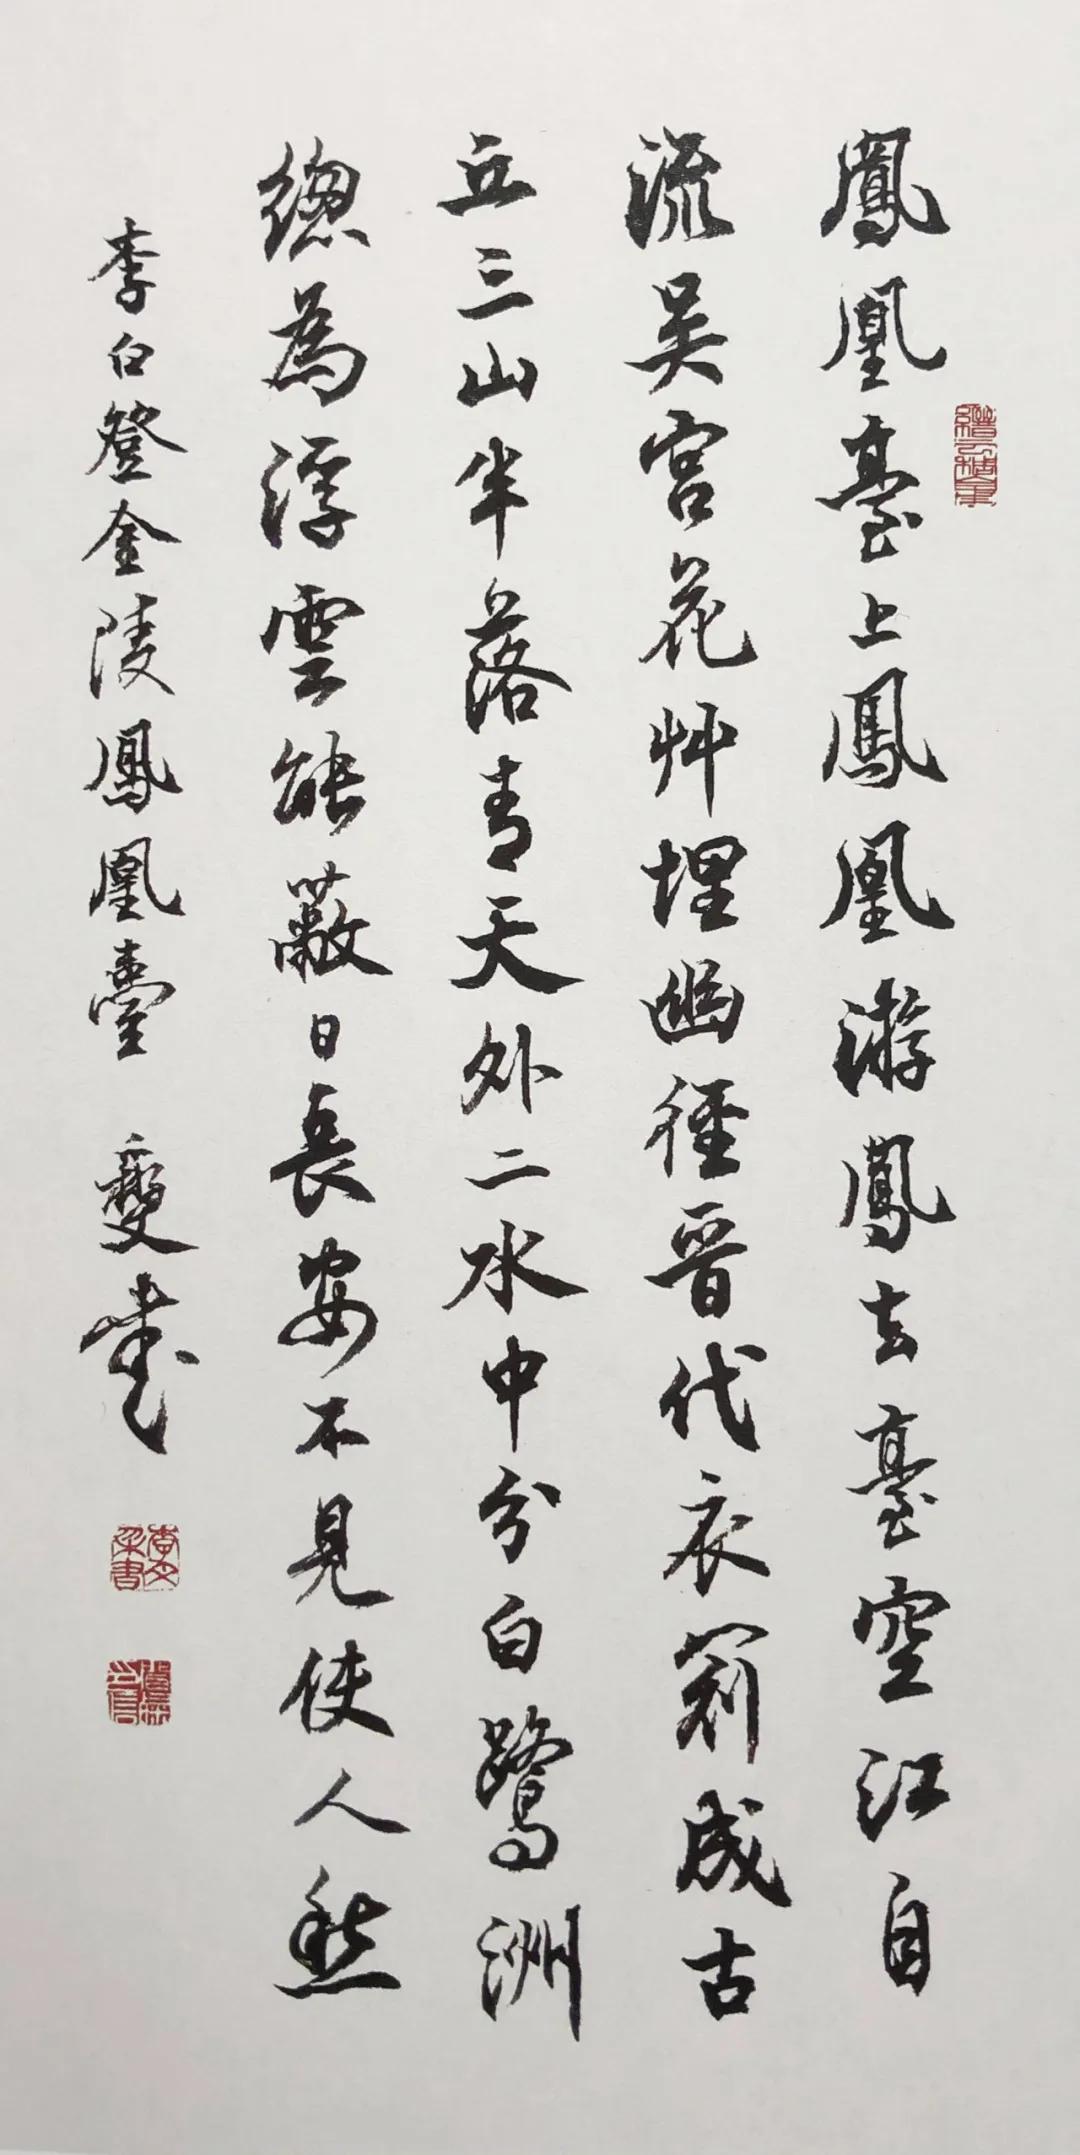 鳳凰臺上鳳凰游鳳去臺空江自
流吴宫花艸埋幽徑晉代衣冠成古
丘三山半落青天外二水中分白鷺洲
總為浮雲能蔽日長安不見使人愁
李白登金陵鳳凰臺 書